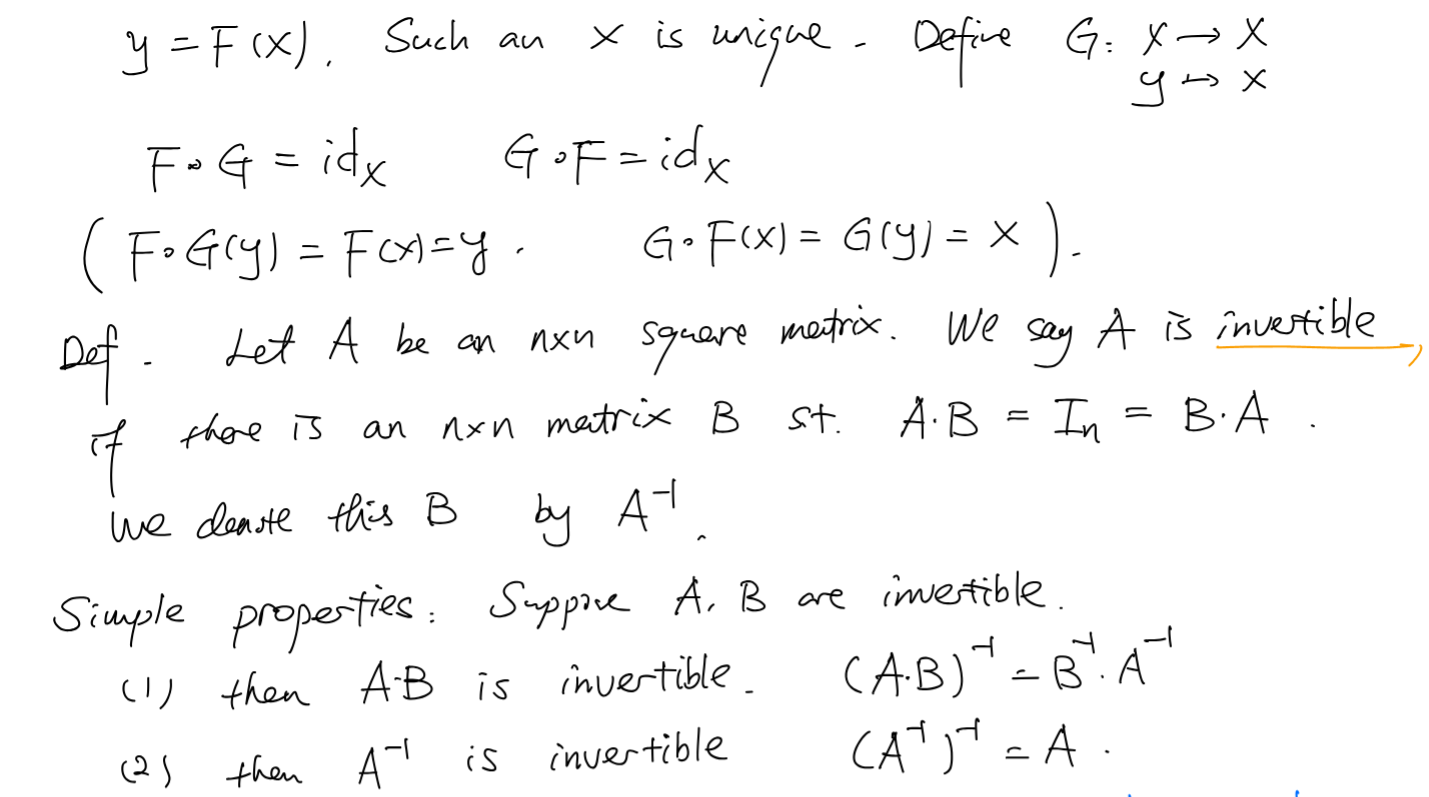 y = F(x). Such an x is unique. Define G: X → X
y ↦ x
F∘G = id_X G∘F = id_X
( F∘G(y) = F(x) = y . G∘F(x) = G(y) = x ).
Def. Let A be an n×n square matrix. We say A is invertible,
if there is an n×n matrix B st. A·B = I_n = B·A .
we denote this B by A⁻¹.
Simple properties: Suppose A, B are invertible.
(1) then A·B is invertible. (A·B)⁻¹ = B⁻¹·A⁻¹
(2) then A⁻¹ is invertible (A⁻¹)⁻¹ = A .